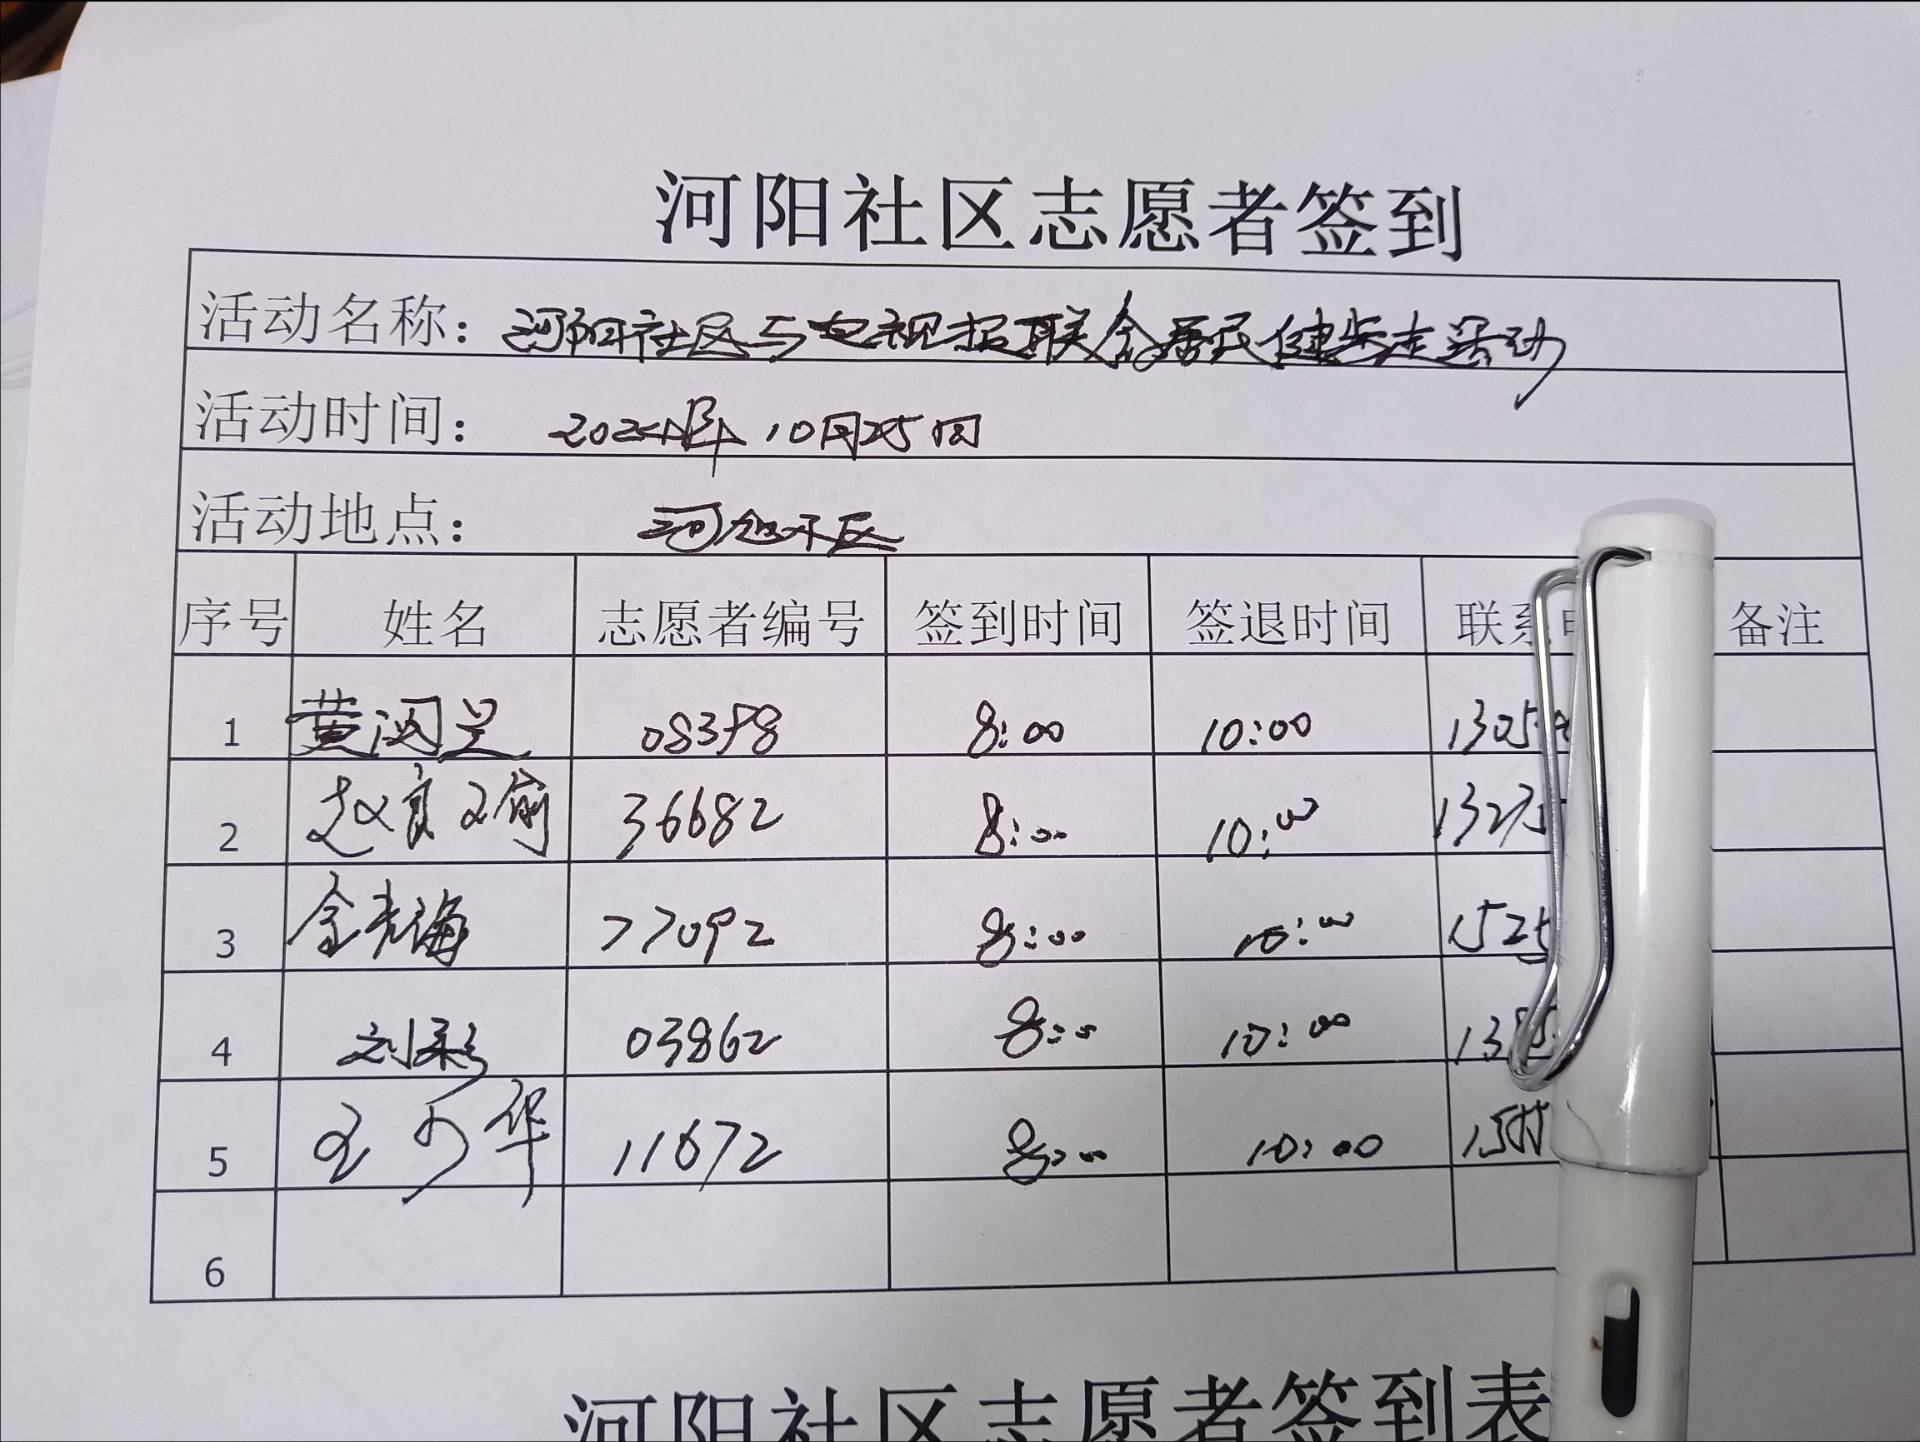 河阳社区志愿者签到
活动名称：河阳社区与电视报联合居民健步走活动
活动时间： 2024年10月25日
活动地点： 河 区
序号 姓名 志愿者编号 签到时间 签退时间 联系 备注
1 黄 兰 08378 8:00 10:00 1305
2 赵 瑜 36682 8:00 10:00 1327
3 金 海 77092 8:00 10:00 1525
4 刘彩 03862 8:00 10:00 13
5 王 华 11672 8:00 10:00 15
6
河阳社区志愿者签到表